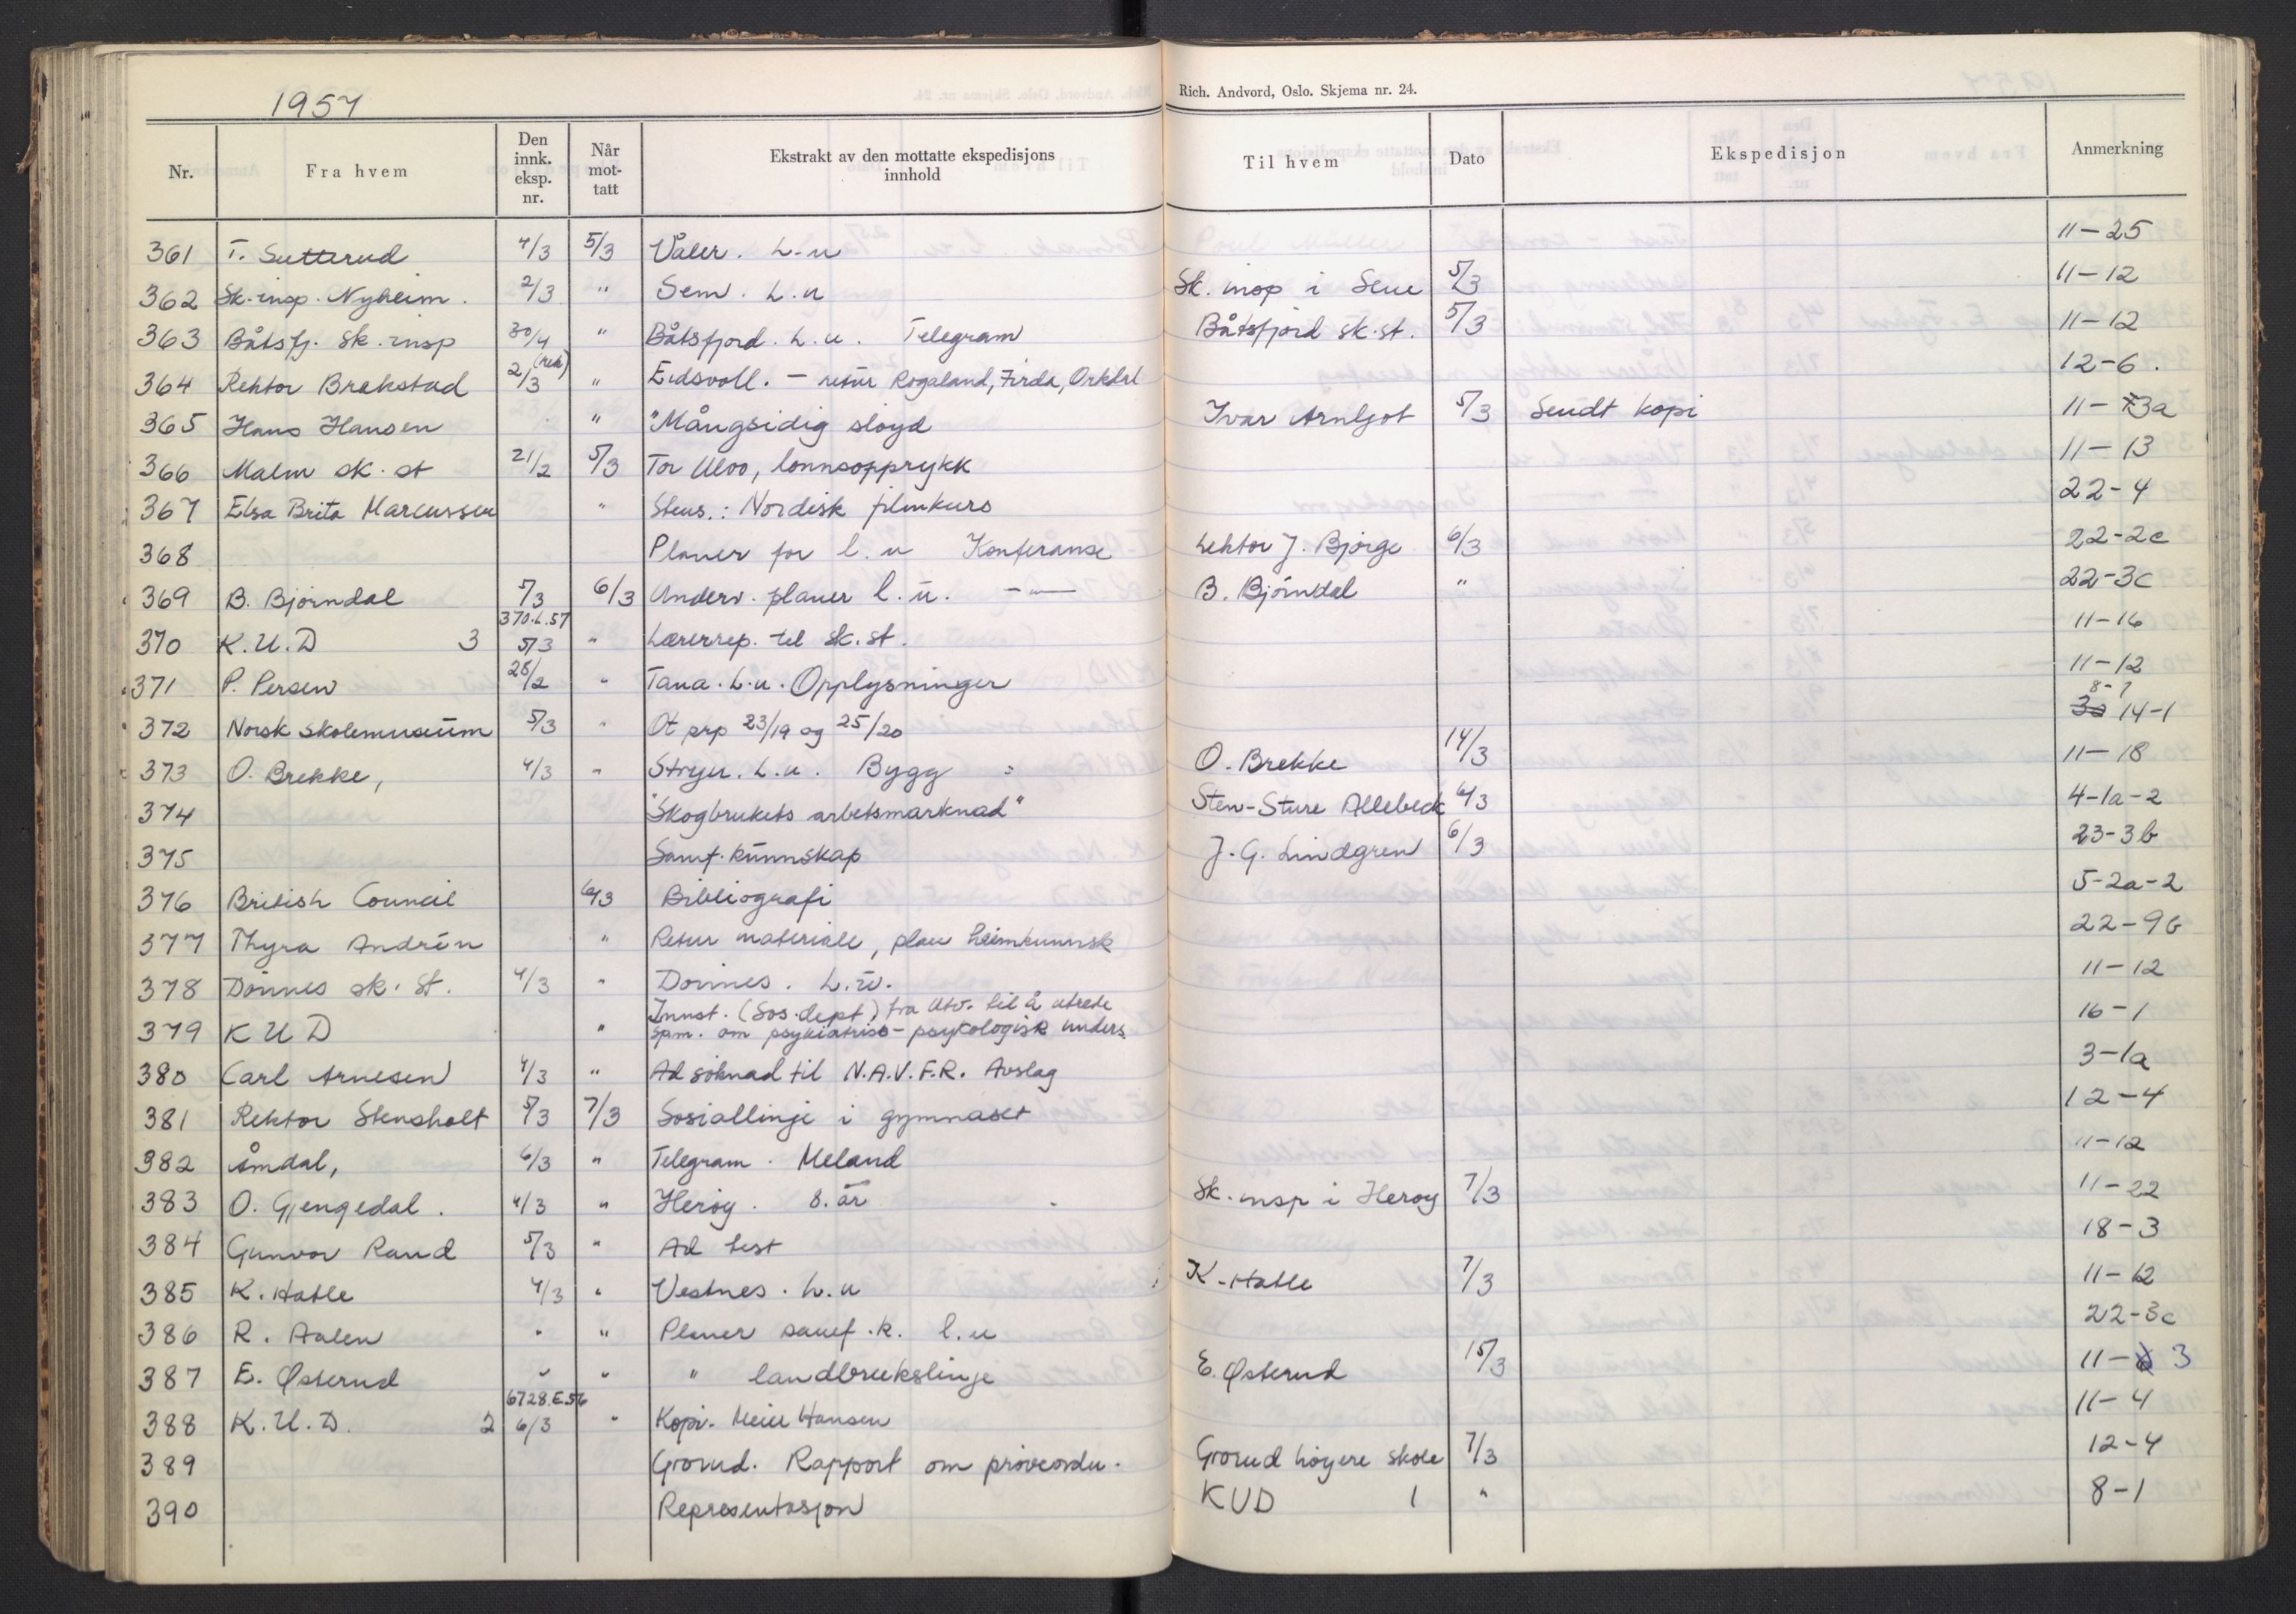 1957
Rich. Andvord, Oslo. Skjema nr. 24.
Nr. | Fra hvem | Den innk. eksp. nr. | Når mot-tatt | Ekstrakt av den mottatte ekspedisjons innhold | Til hvem | Dato | Ekspedisjon | Anmerkning
361 T. Sutterud 4/3 5/3 Våler. L.u 11-25
362 Sk.insp. Nyheim. 2/3 " Sem. L.u Sk. insp i Sem 5/3 11-12
363 Båtsfj. Sk.insp 30/4 " Båtsfjord. L.u. Telegram Båtsfjord sk.st. 5/3 11-12
364 Rektor Brekstad 2/3 " Eidsvoll. – retur Rogaland, Firda, Orkdal 12-6.
365 Hans Hansen " "Mångsidig sløyd Ivar Arnljot 5/3 Sendt kopi 11-3a
366 Malm sk.st 21/2 5/3 Tor Uloo, lønnsopprykk 11-13
367 Elsa Brita Marcussen " Stens.: Nordisk filmkurs 22-4
368 Planer for l.u Konferanse Lektor J. Bjørge 6/3 22-2c
369 B. Bjørndal 5/3 6/3 Underv. planer l.u. -"- B. Bjørndal " 22-3c
370.L.57
370 K.U.D 3 5/3 " Lærerrep. til sk.st. 11-16
371 P. Persen 28/2 " Tana. L.u. Opplysninger 11-12
8-7
372 Norsk Skolemuseum 5/3 " Ot prp 23/19 og 25/20 14-1
373 O. Brekke, 4/3 " Stryn. L.u. Bygg O. Brekke 14/3 11-18
374 "Skogbrukets arbetsmarknad" Sten-Sture Allebeck 6/3 4-1a-2
375 Samf.kunnskap J.G. Lindgren 6/3 23-3b
376 British Council 6/3 Bibliografi 5-2a-2
377 Thyra Andrén " Retur materiale, plan heimkunnsk 22-9b
378 Dønnes sk.st. 4/3 " Dønnes. L.u. 11-12
Innst. (Sos.dept) fra Utv. til å utrede
379 K U D " spm. om psykiatrisk-psykologisk unders. 16-1
380 Carl Arnesen 4/3 " Ad søknad til N.A.V.F.R. Avslag 3-1a
381 Rektor Stensholt 5/3 7/3 Sosiallinje i gymnaset 12-4
382 Åmdal, 6/3 " Telegram. Meland 11-12
383 O. Gjengedal. 4/3 " Herøy. 8. år Sk.insp i Herøy 7/3 11-22
384 Gunvor Rand 5/3 " Ad test 18-3
385 K. Hatle 4/3 " Vestnes. L.u K. Hatle 7/3 11-12
386 R. Aalen " " Planer samf.k. l.u 22-3c
387 E. Østerud " " " landbrukslinje E. Østerud 15/3 11-3
6728.E.56
388 K.U.D. 2 6/3 " Kopi. Meier Hansen 11-4
389 Grorud. Rapport om prøveordn. Grorud høyere skole 7/3 12-4
390 Representasjon KUD 1 " 8-1